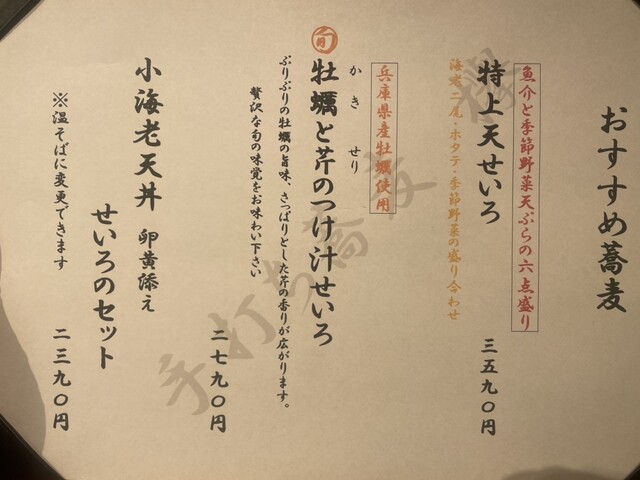 おすすめ蕎麦
魚介と季節野菜天ぷらの六点盛り
特上天せいろ
三五九〇円
海老二尾・ホタテ・季節野菜の盛り合わせ
兵庫県産牡蠣使用
かき せり
旬
牡蠣と芹のつけ汁せいろ
ぷりぷりの牡蠣の旨味、さっぱりとした芹の香りが広がります。
贅沢な旬の味覚をお味わい下さい
二七九〇円
小海老天丼 卵黄添え
せいろのセット
※温そばに変更できます
二三九〇円
手打ち蕎麦